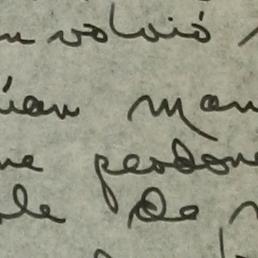 n volvió
uian man
ne perdone
le de